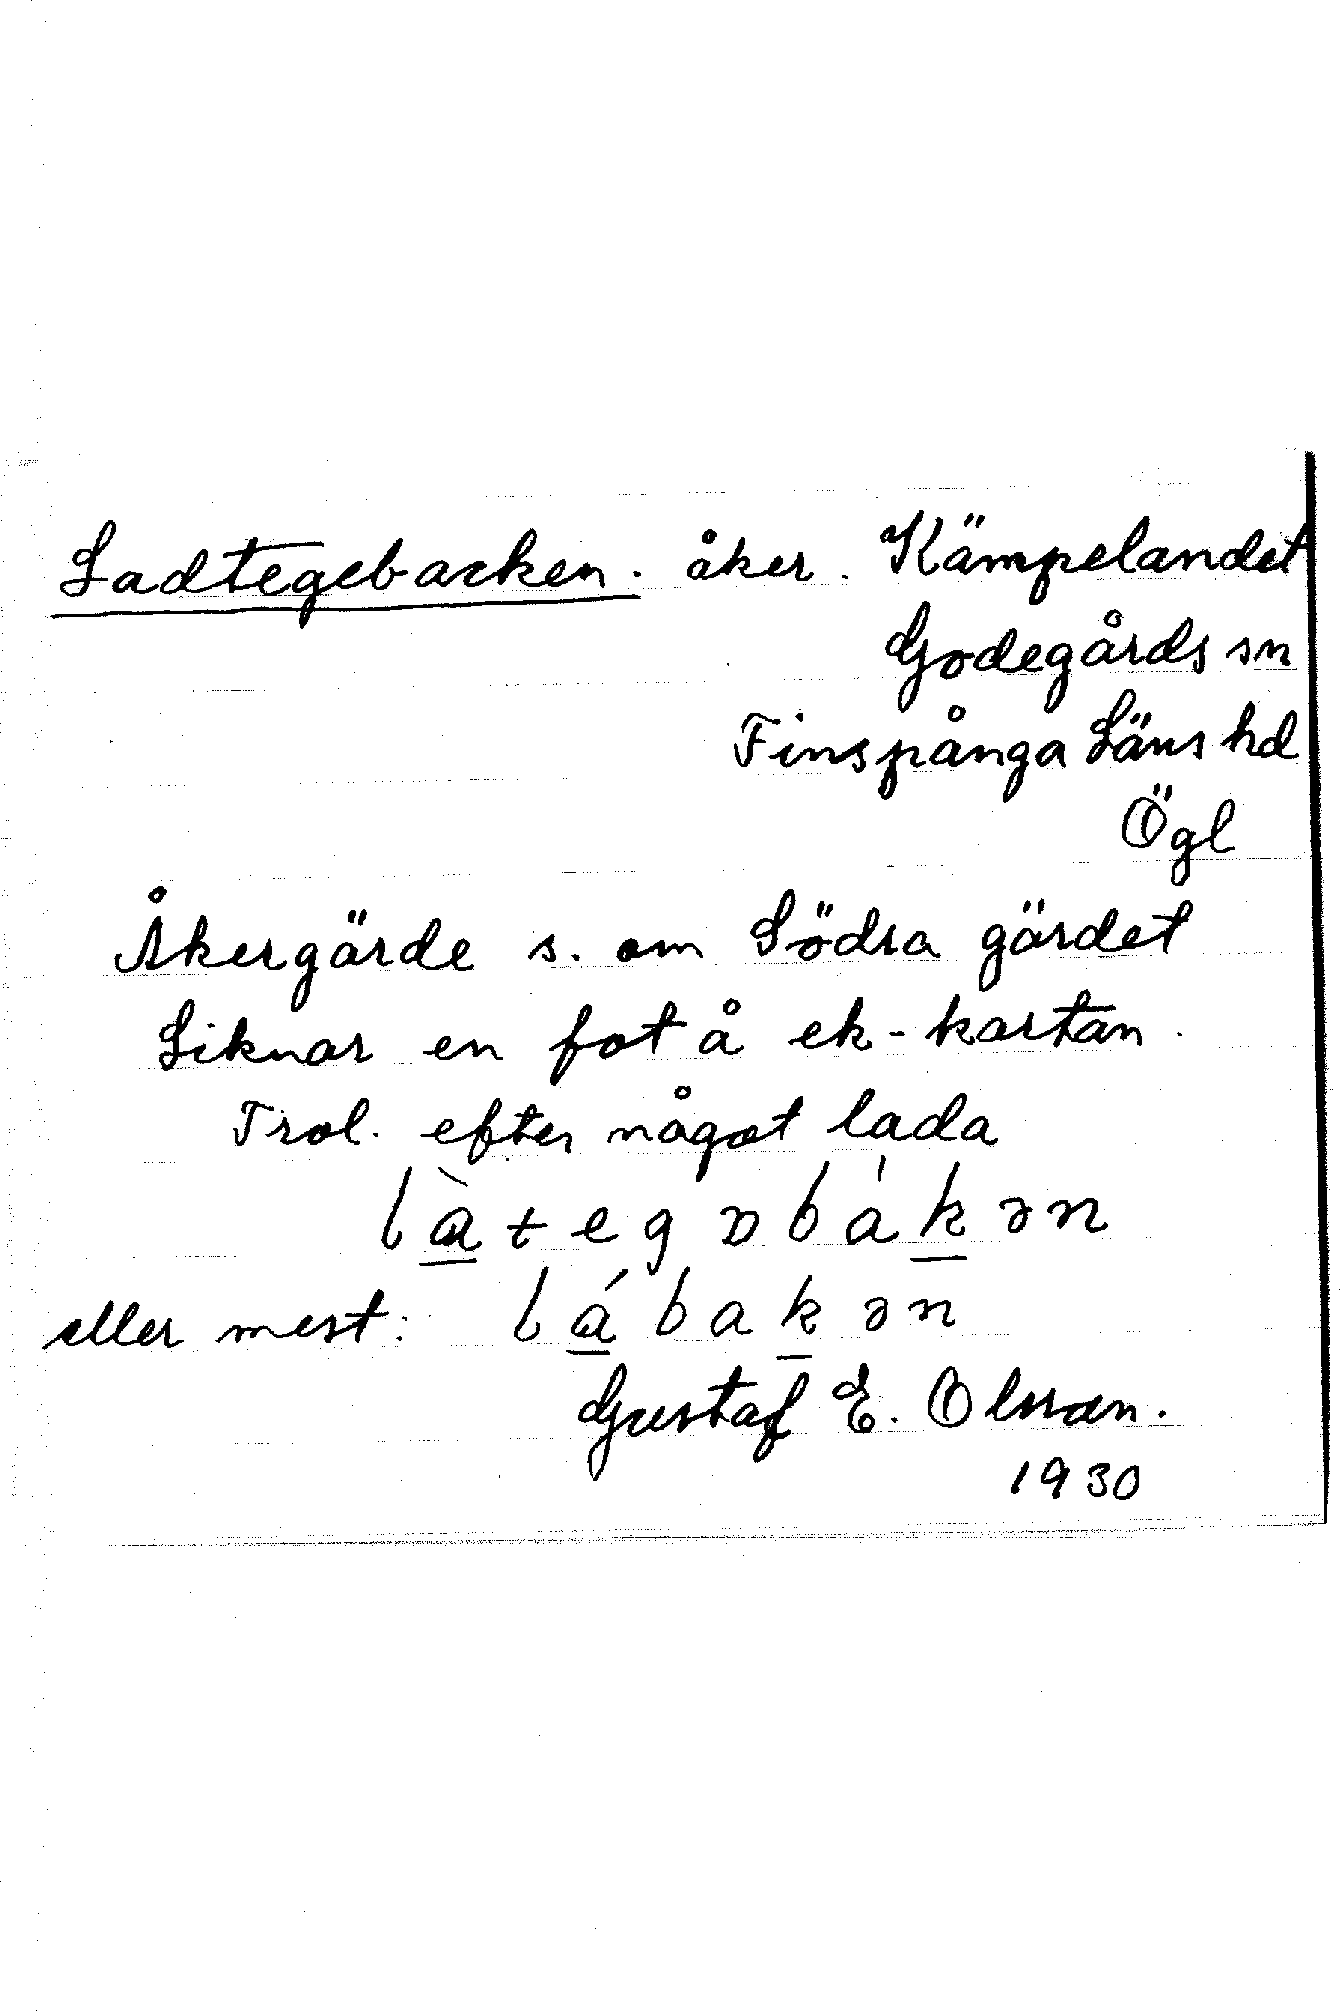 Ladtegebacken. åker. Kämpelandet
Godegårds sn
Finspånga Läns hd
Ögl
Åkergärde s. om Södra gärdet
Liknar en fot å ek-kartan.
Trol. efter något lada
là̱tegɒbáḵən
eller mest: lá̱baḵən
Gustaf E. Olsson.
1930